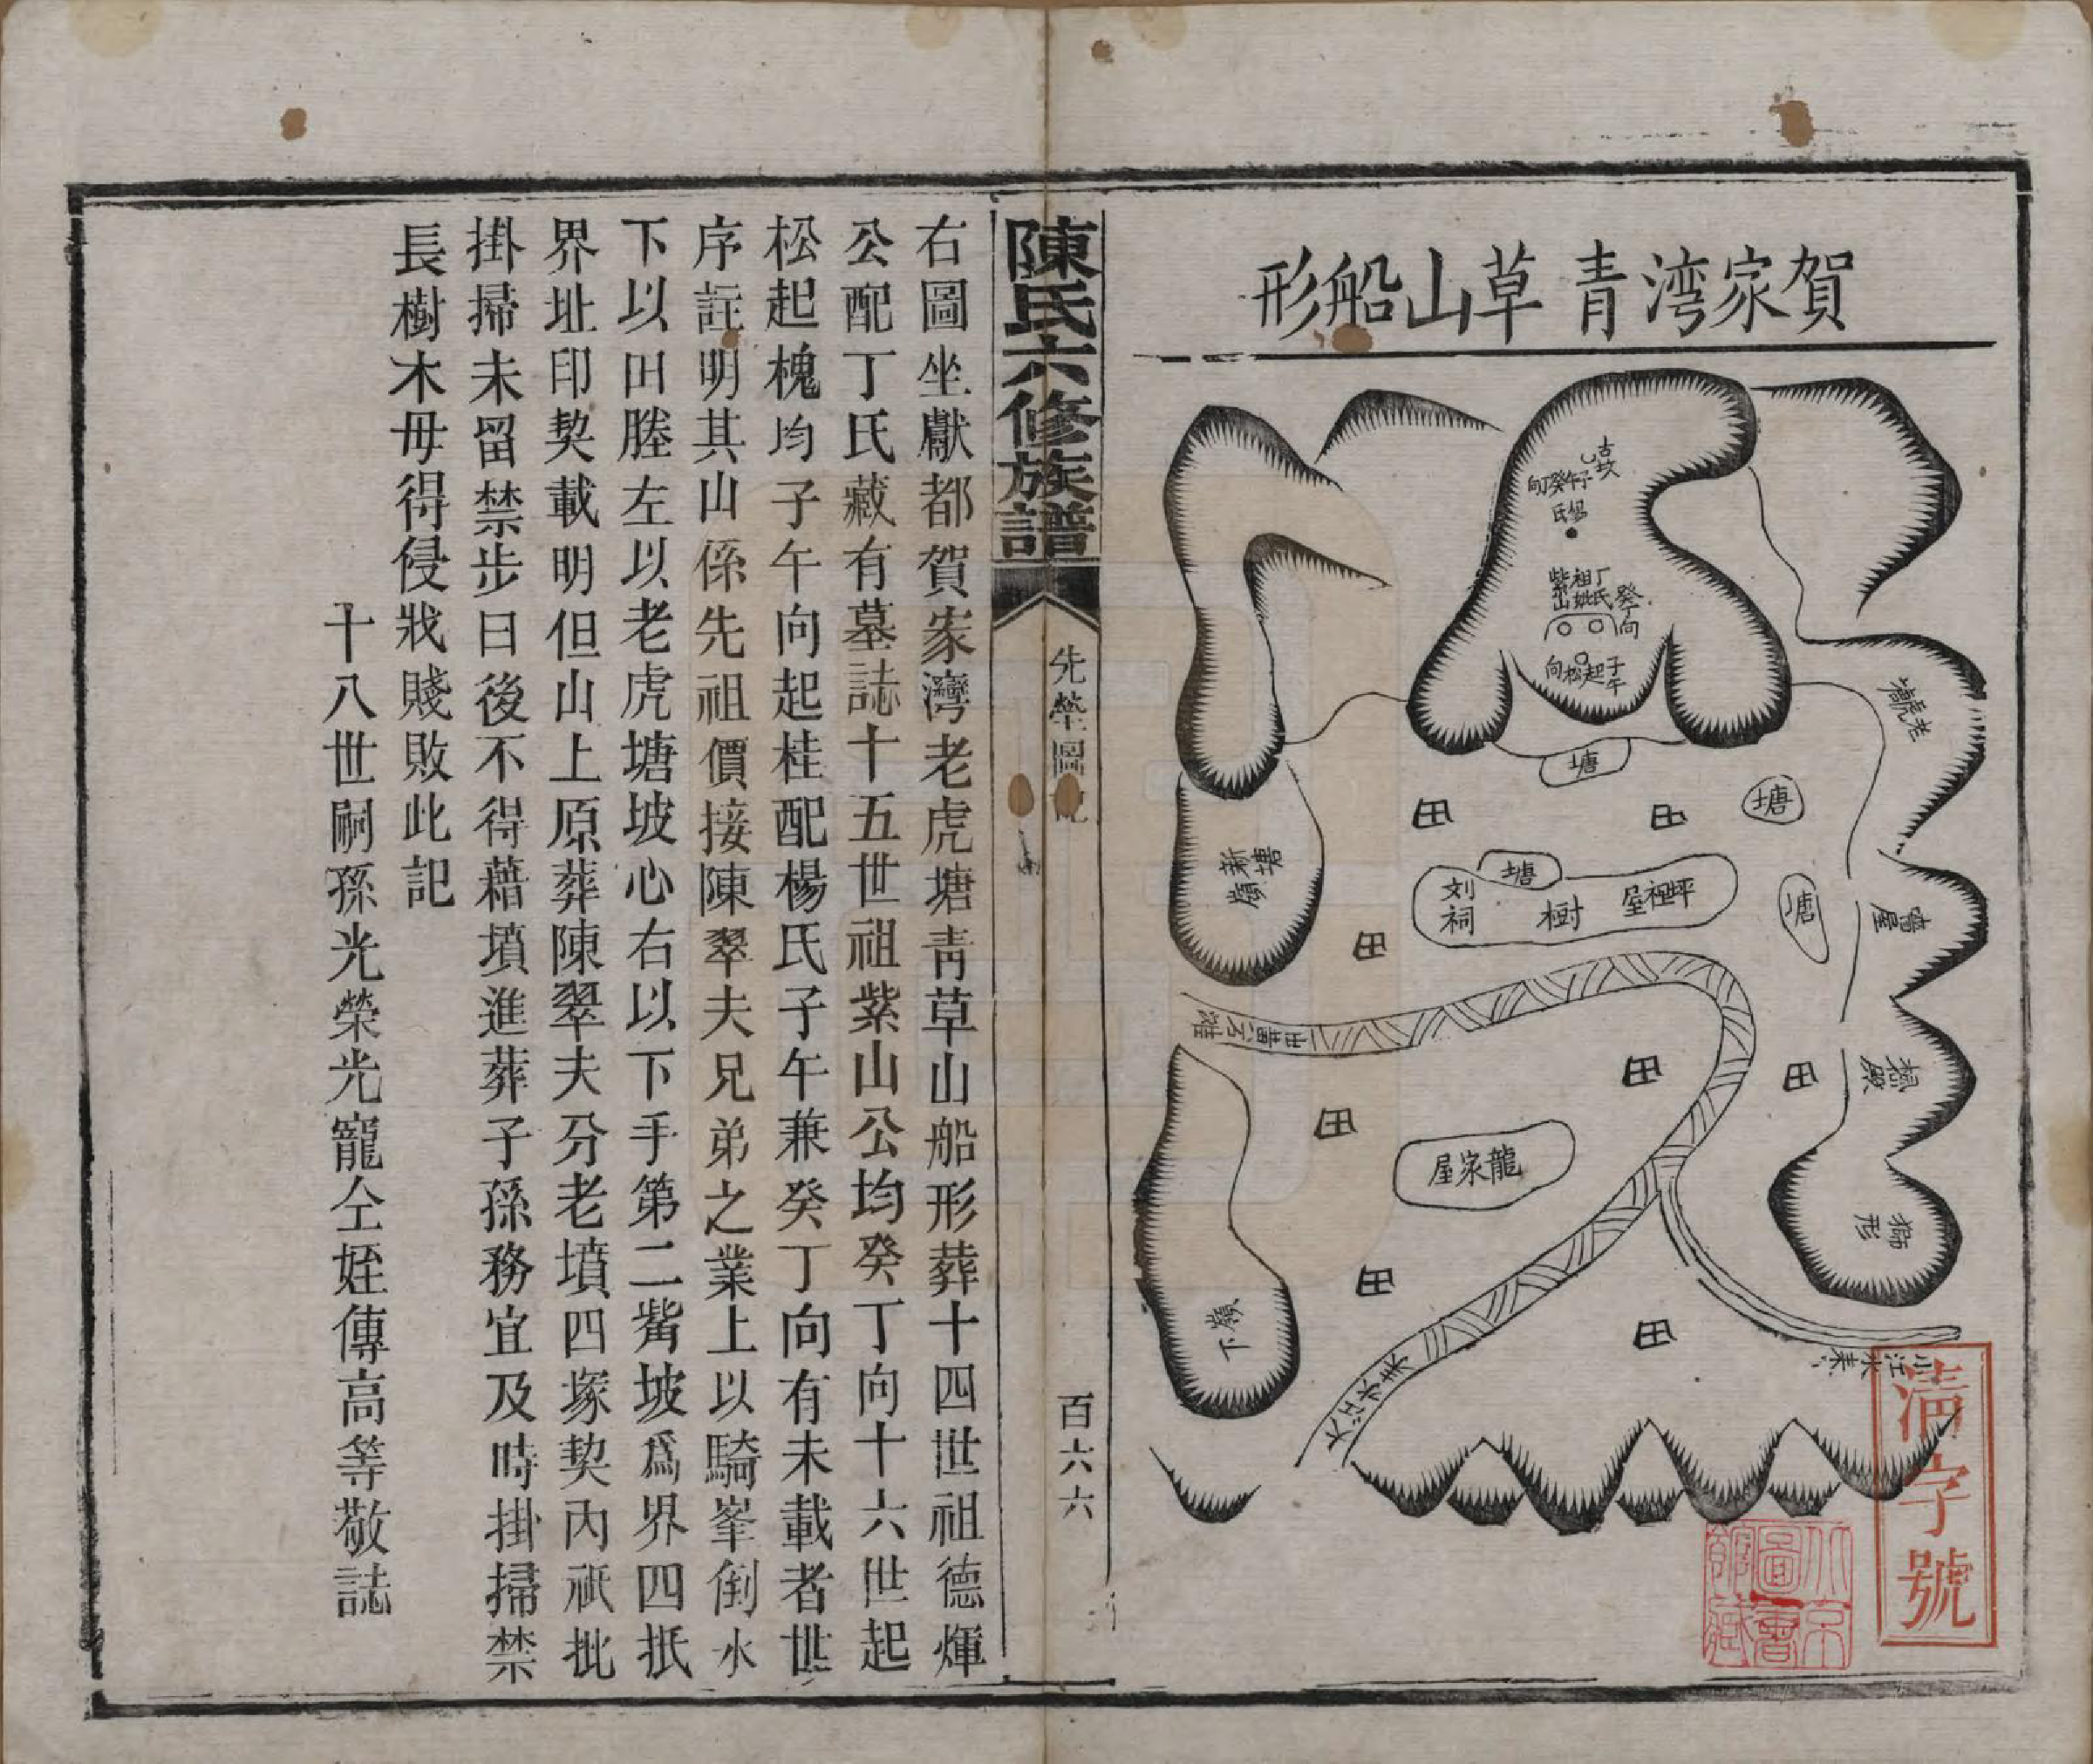 賀家湾青草山船形
古坟
子午癸丁向
氏
丁氏
祖妣
紫山
癸丁向
子午
起松向
老虎塘
塘
塘
田
田
塘
塘
坪祖屋
樹
刘祠
新塘嶺
田
田
田
田
龍家屋
獅形
下嶺
田
田
小江水来
大江水来
清字號
北京圖書館藏
陳氏六修族譜
先塋圖記
百六六
右圖坐獻都賀家灣老虎塘青草山船形葬十四世祖德煇
公配丁氏藏有墓誌十五世祖紫山公均癸丁向十六世起
松起槐均子午向起桂配楊氏子午兼癸丁向有未載者世
序註明其山係先祖價接陳翠夫兄弟之業上以騎峯倒水
下以田塍左以老虎塘坡心右以下手第二嘴坡爲界四抵
界址印契載明但山上原葬陳翠夫分老墳四塚契內祇批
掛掃未留禁步日後不得藉墳進葬子孫務宜及時掛掃禁
長樹木毋得侵戕賤敗此記
十八世嗣孫光榮光寵仝姪傳高等敬誌